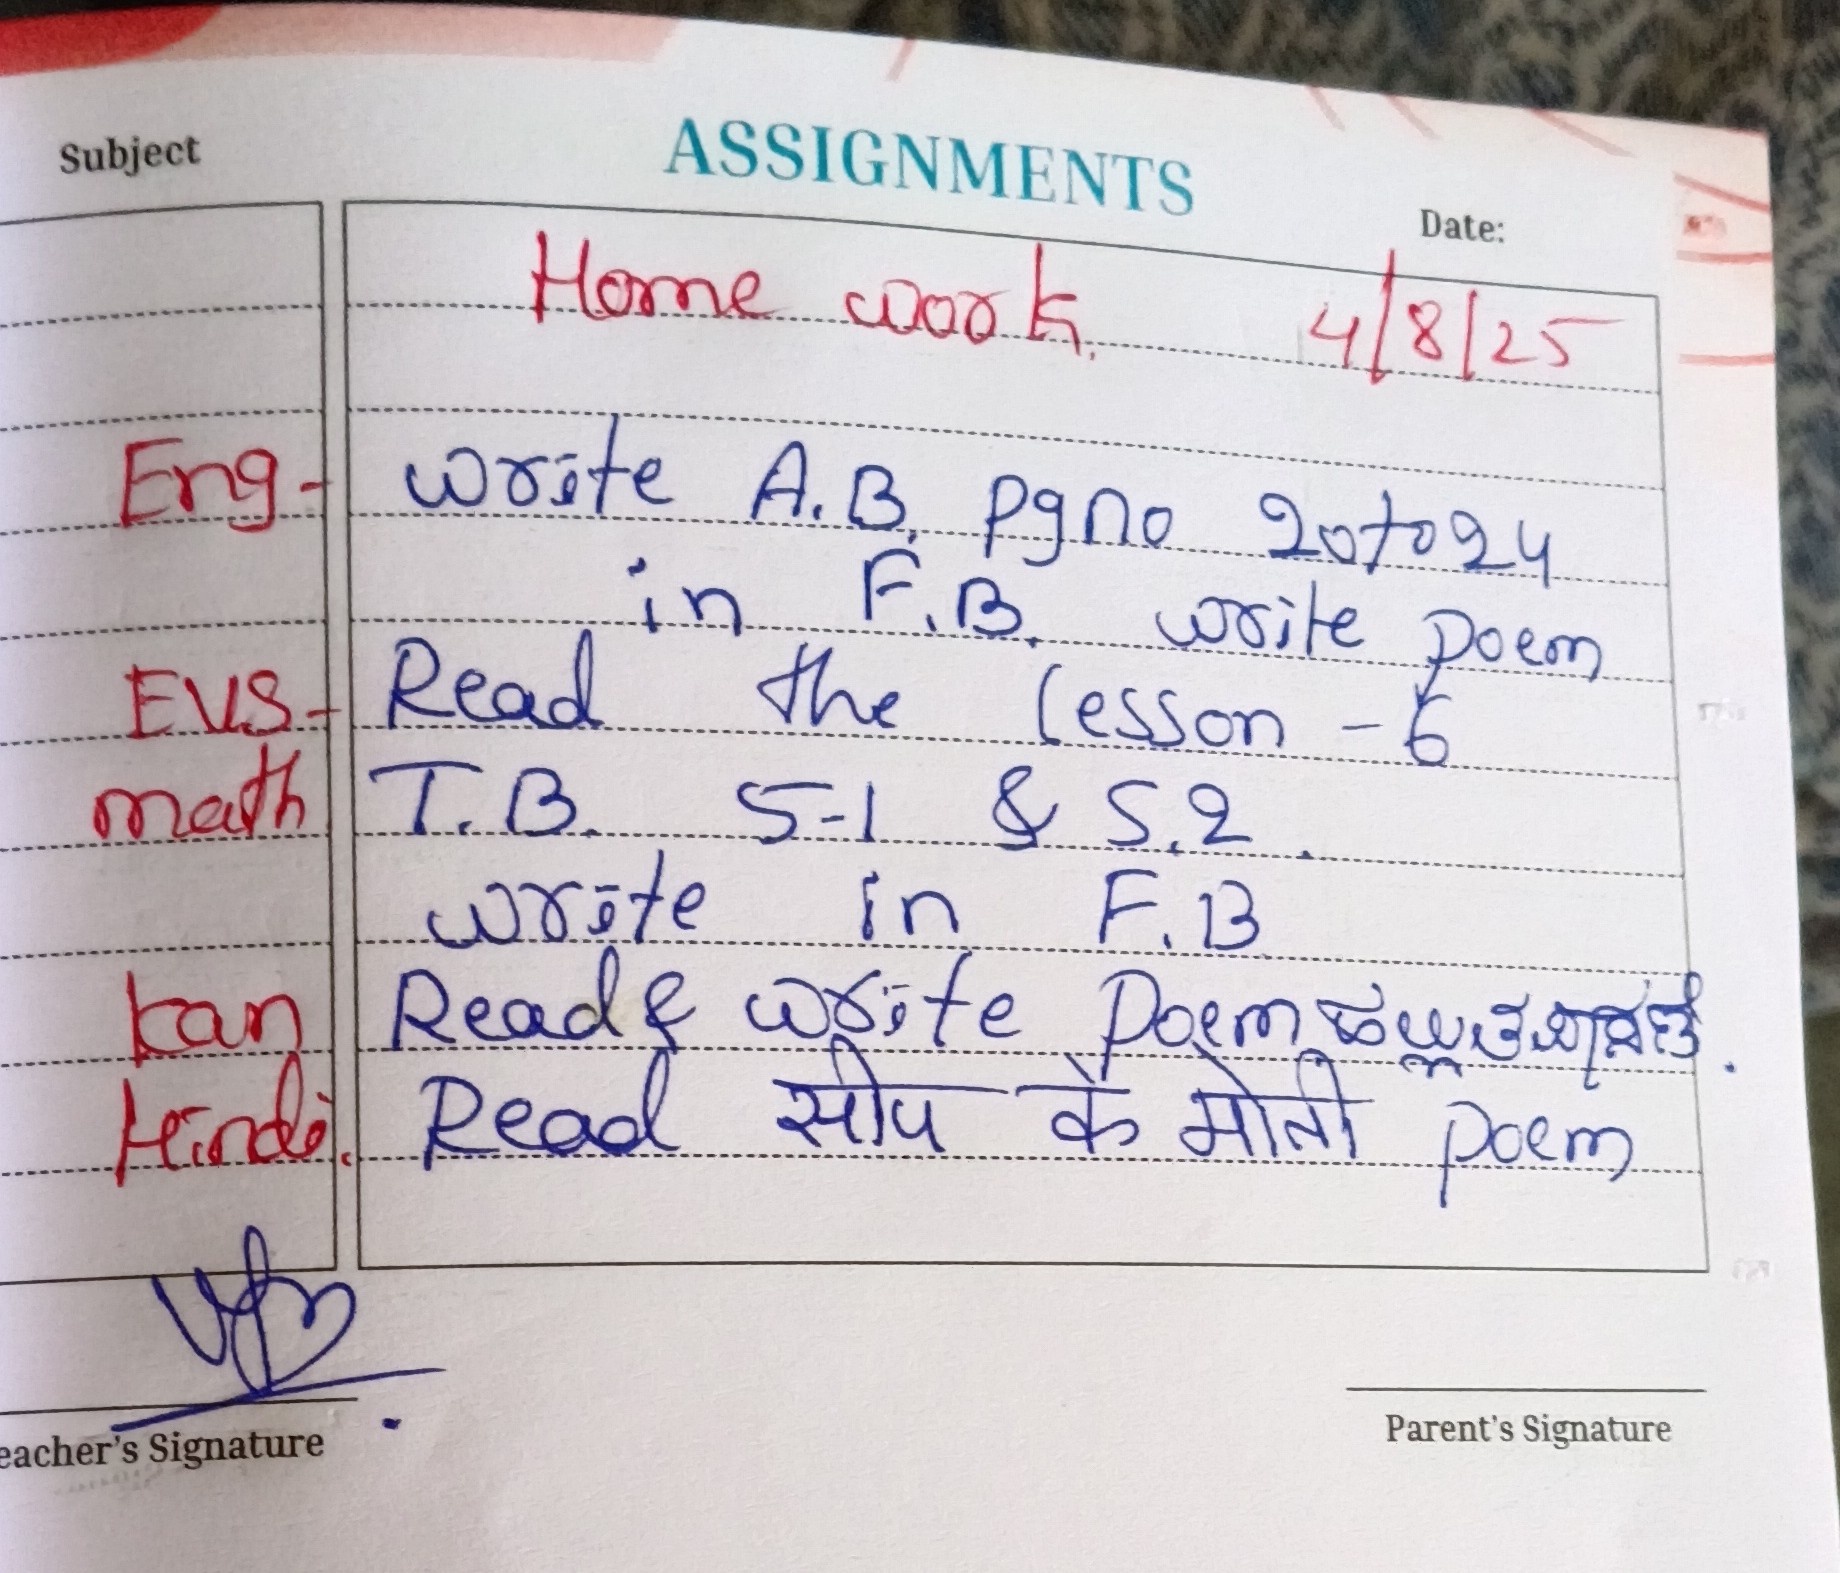 Subject
ASSIGNMENTS
Date:
Home work. 4/8/25
Eng- write A.B. Pg no 20 to 24
in F.B. write poem
EVS- Read the lesson - 6
math T.B. 5-1 & 5.2.
write in F.B
kan Read & write Poem
Hindi. Read सीप के मोती poem
eacher's Signature
Parent's Signature